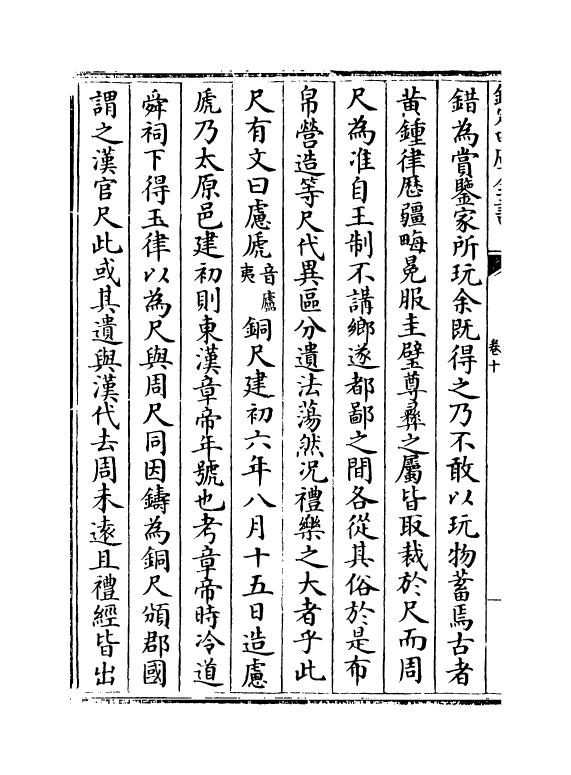 卷十
錯為賞鑒家所玩余既得之乃不敢以玩物蓄焉古者
黃鍾律歷疆畮冕服圭璧尊彝之屬皆取裁於尺而周
尺為准自王制不講鄉遂都鄙之間各從其俗於是布
帛營造等尺代異區分遺法蕩然况禮樂之大者乎此
尺有文曰慮俿音廬夷銅尺建初六年八月十五日造慮
俿乃太原邑建初則東漢章帝年號也考章帝時冷道
舜祠下得玉律以為尺與周尺同因鑄為銅尺頒郡國
謂之漢官尺此或其遺與漢代去周未遠且禮經皆出